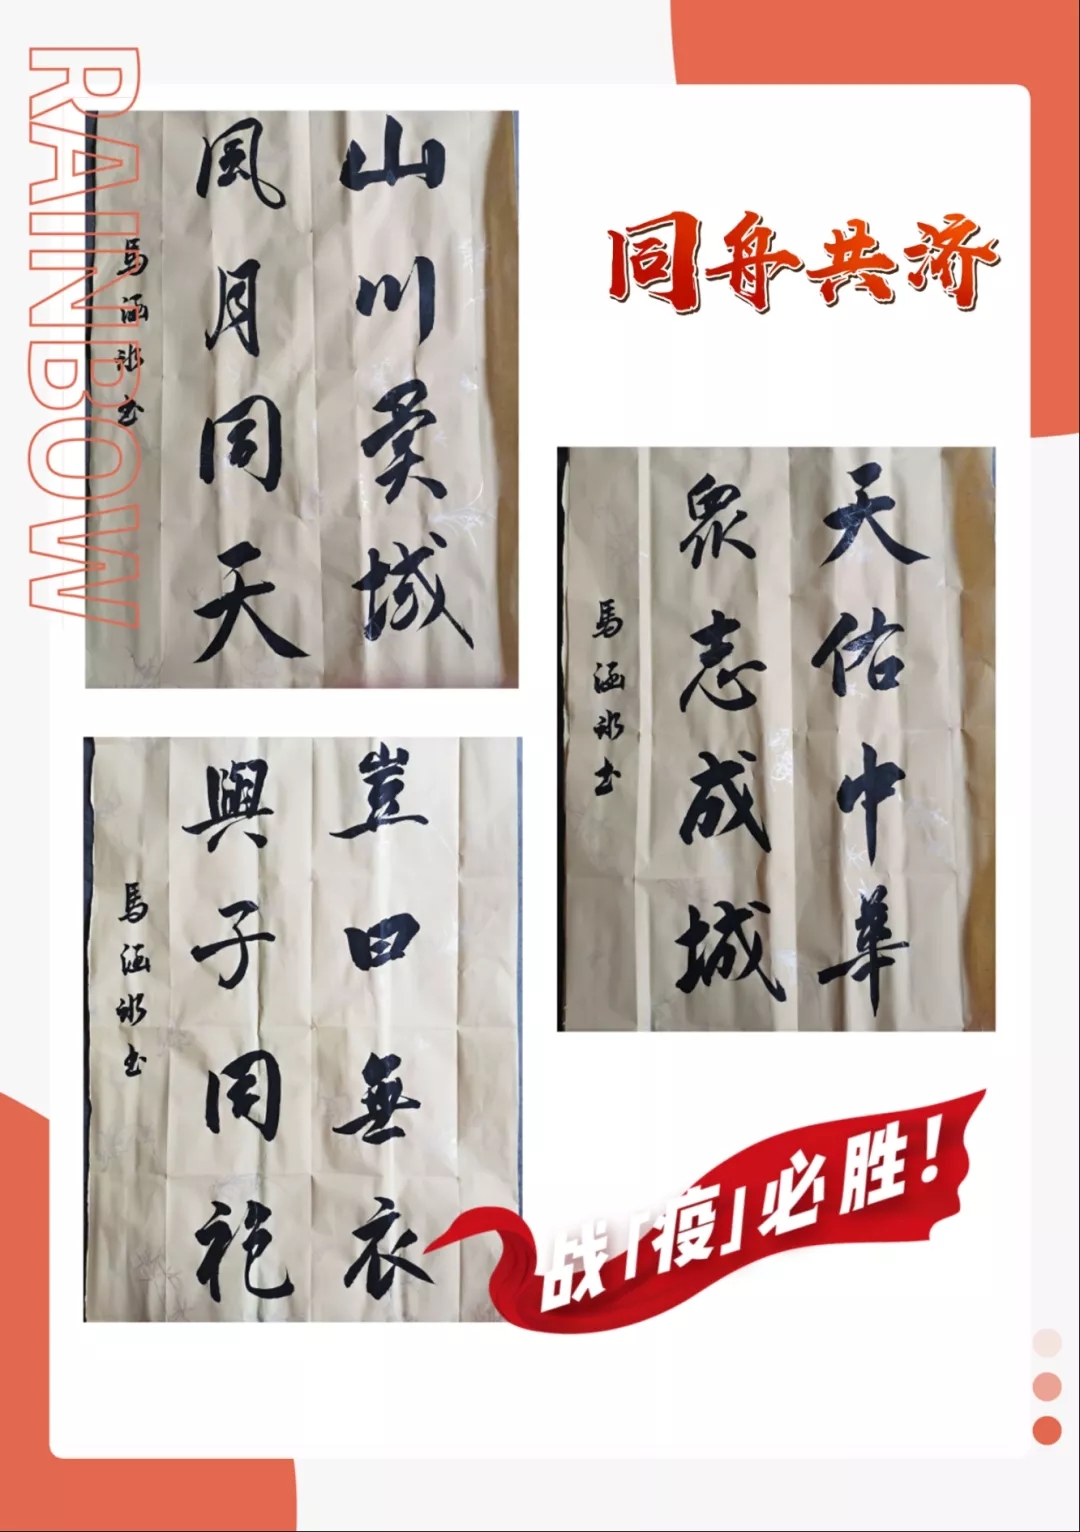 RAINBOW
山川異域
風月同天
馬涵冰书
同舟共济
天佑中華
眾志成城
馬涵冰书
豈曰無衣
與子同袍
馬涵冰书
战「疫」必胜！